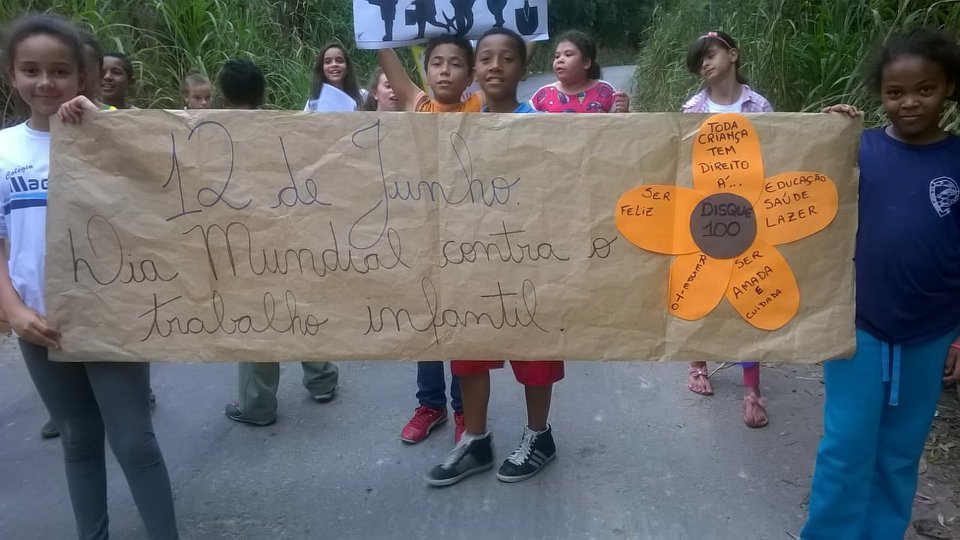 12 de Junho.
Dia Mundial contra o
trabalho infantil.
TODA
CRIANÇA
TEM
DIREITO
Á...
EDUCAÇÃO
SAÚDE
LAZER
SER
AMADA
E
CUIDADA
SER
FELIZ
DISQUE
100
Colégio